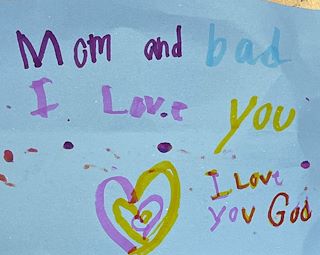 Mom and bad
I Love you
I Love
you God